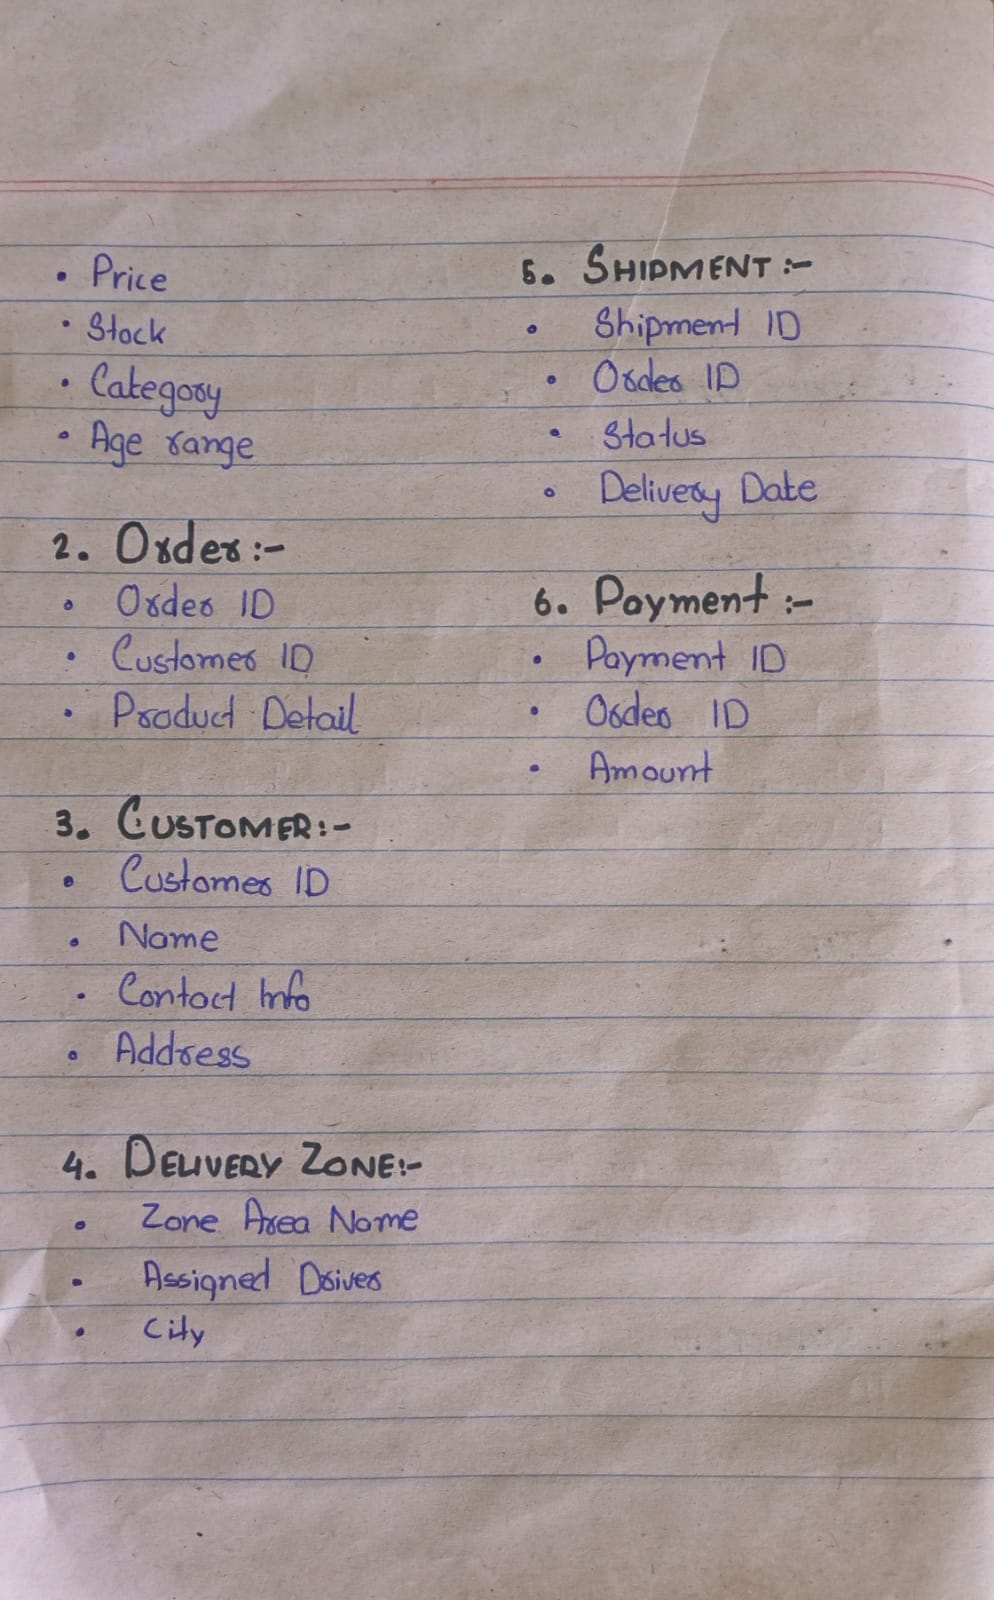 • Price
• Stock
• Category
• Age range
2. Order :-
• Order ID
• Customer ID
• Product Detail
3. CUSTOMER :-
• Customer ID
• Name
• Contact Info
• Address
4. DELIVERY ZONE :-
• Zone Area Name
• Assigned Driver
• City
5. SHIPMENT :-
• Shipment ID
• Order ID
• Status
• Delivery Date
6. Payment :-
• Payment ID
• Order ID
• Amount